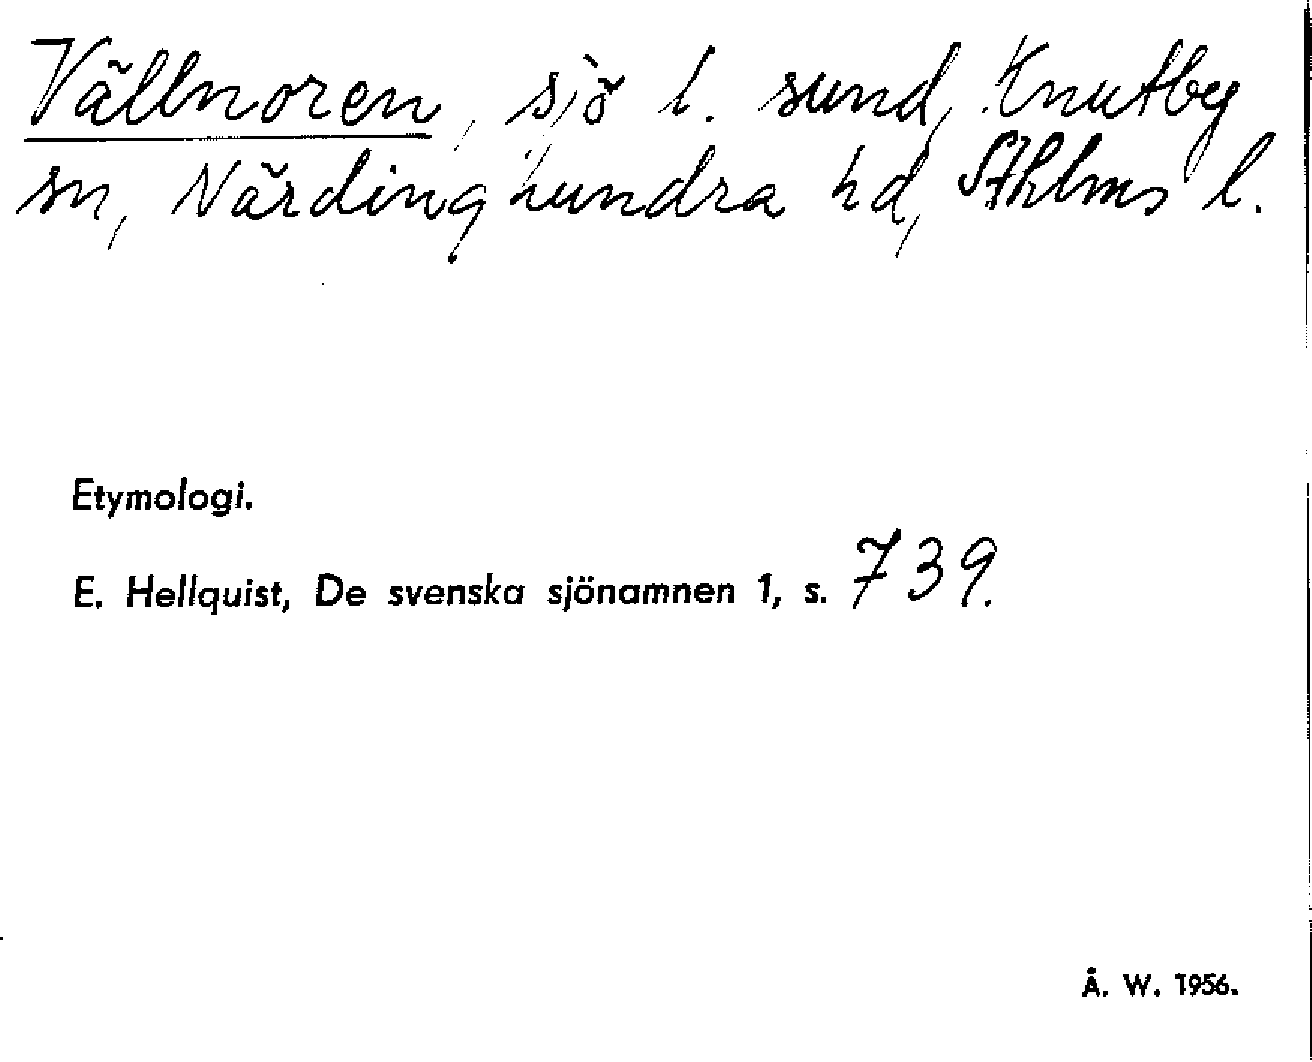 Vällnoren, sjö l. sund, Knutby
sn, Närdinghundra hd, Sthlms l.
Etymologi.
E. Hellquist, De svenska sjönamnen 1, s. 739.
Å. W. 1956.